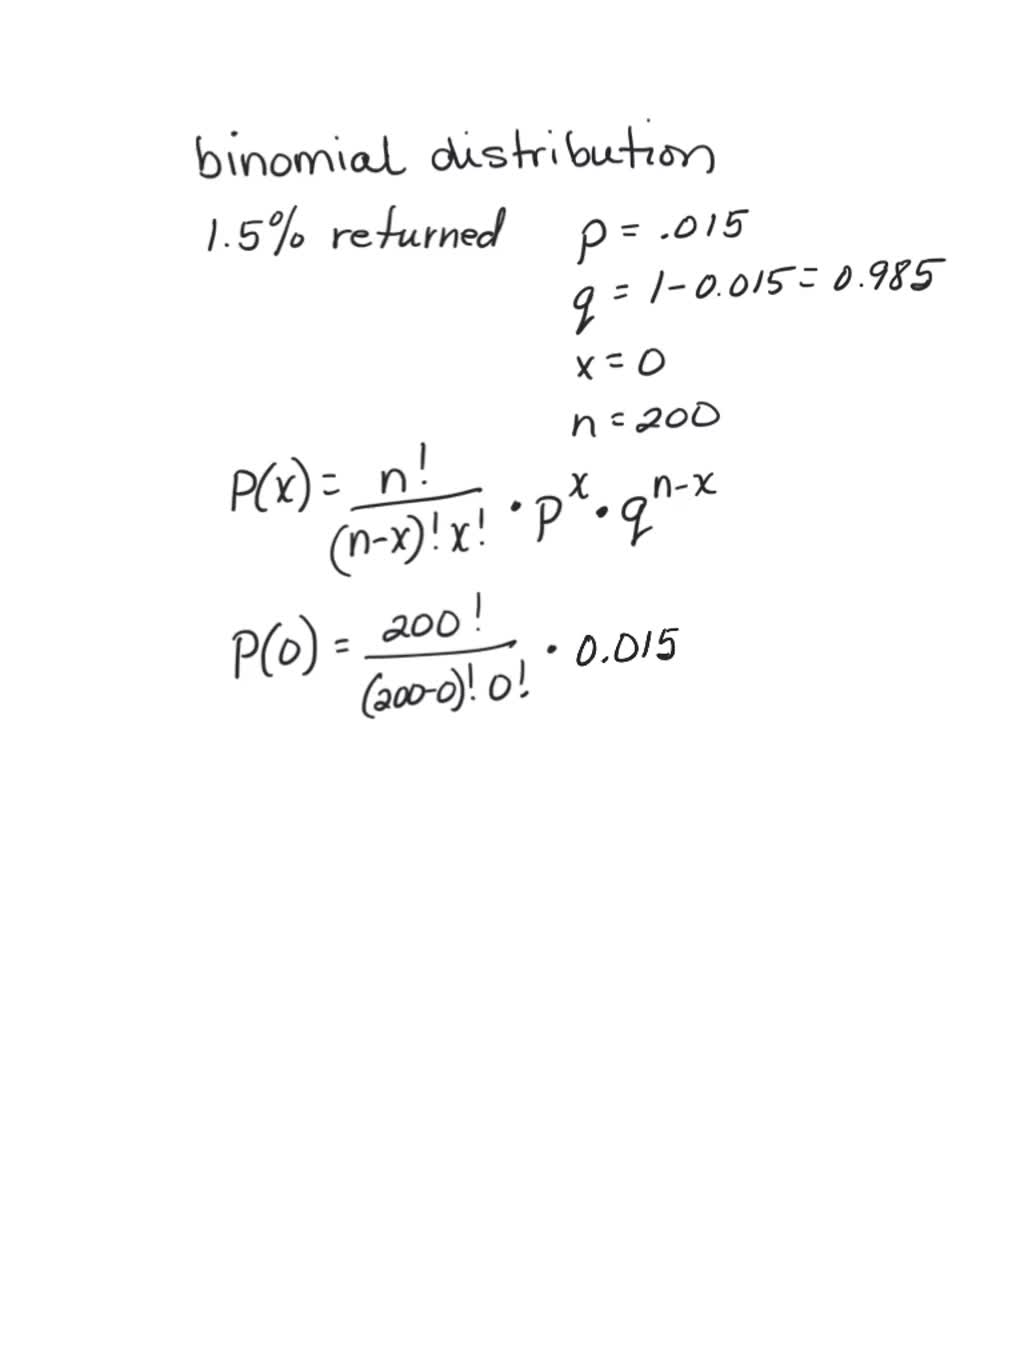 binomial distribution
1.5% returned p = .015
q = 1 - 0.015 = 0.985
x = 0
n = 200
P(x) = n! / (n-x)! x! · p^x · q^(n-x)
P(0) = 200! / (200-0)! 0! · 0.015